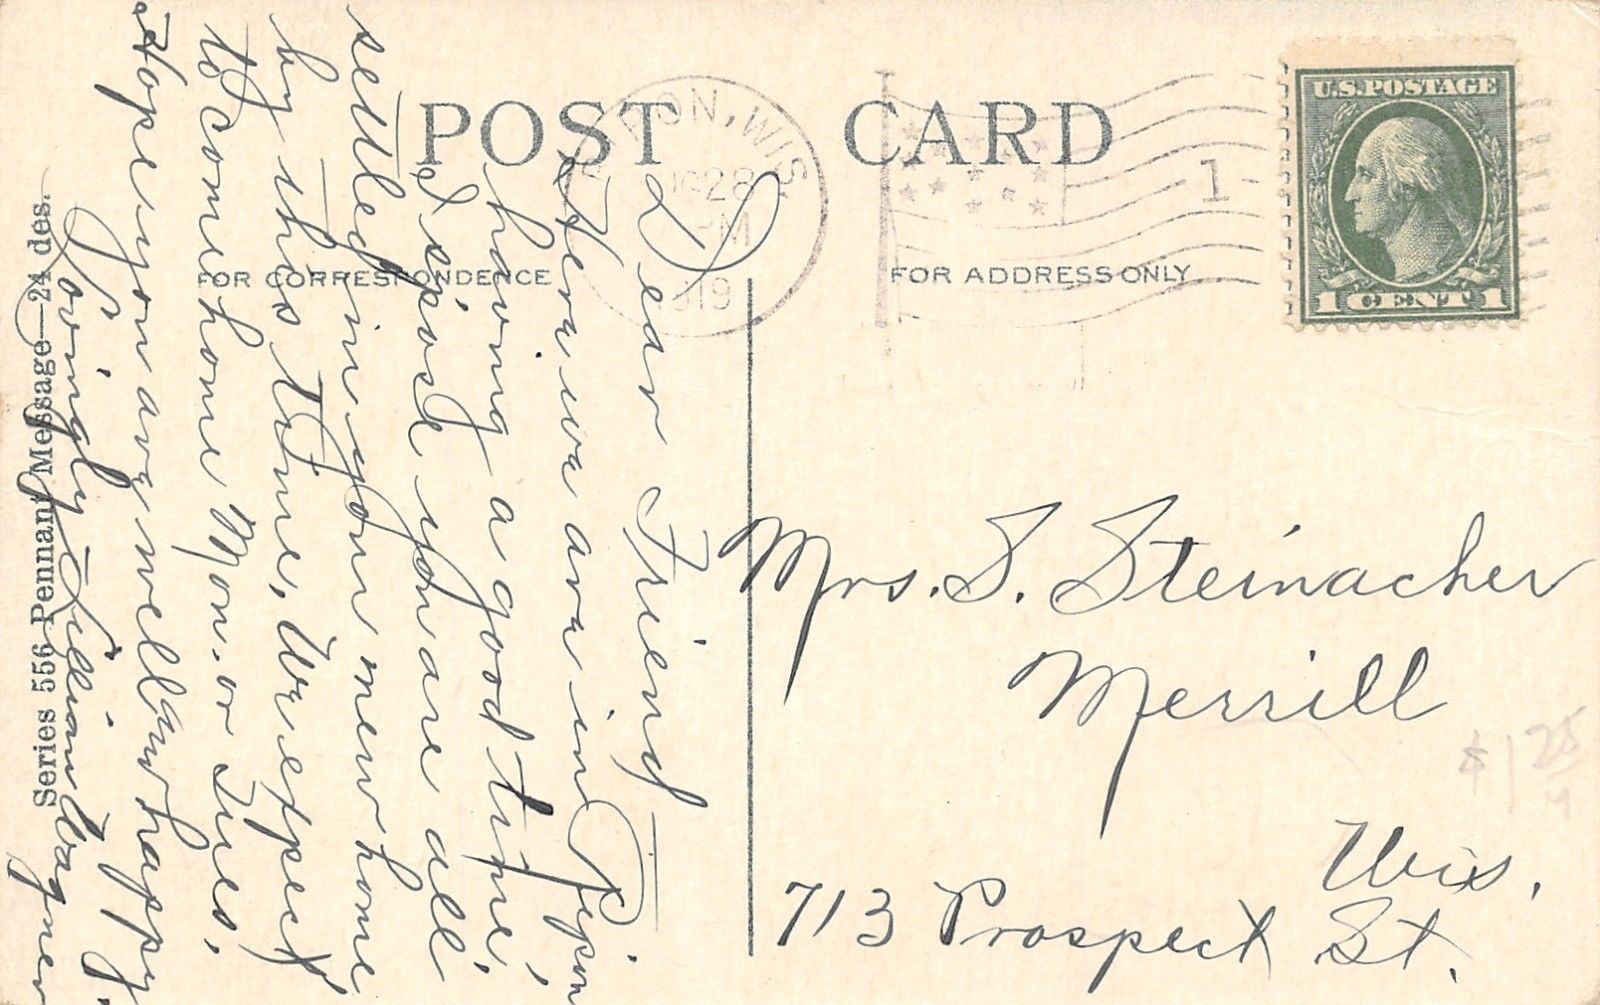 POST CARD
FOR CORRESPONDENCE
FOR ADDRESS ONLY
U.S. POSTAGE
1 CENT 1
ON, WIS.
28
M
1
Dear Friend
Here we are in Ripon
having a good time,
I s'pose you are all
settled in your new home
by this time, We expect
to come home Mon. or Tues.
Hope you are well and happy.
Lovingly Lillian Wagner
Mrs. S. Steinacher
Merrill
Wis.
713 Prospect St.
$1 25
Series 556 Pennant Message—24 des.